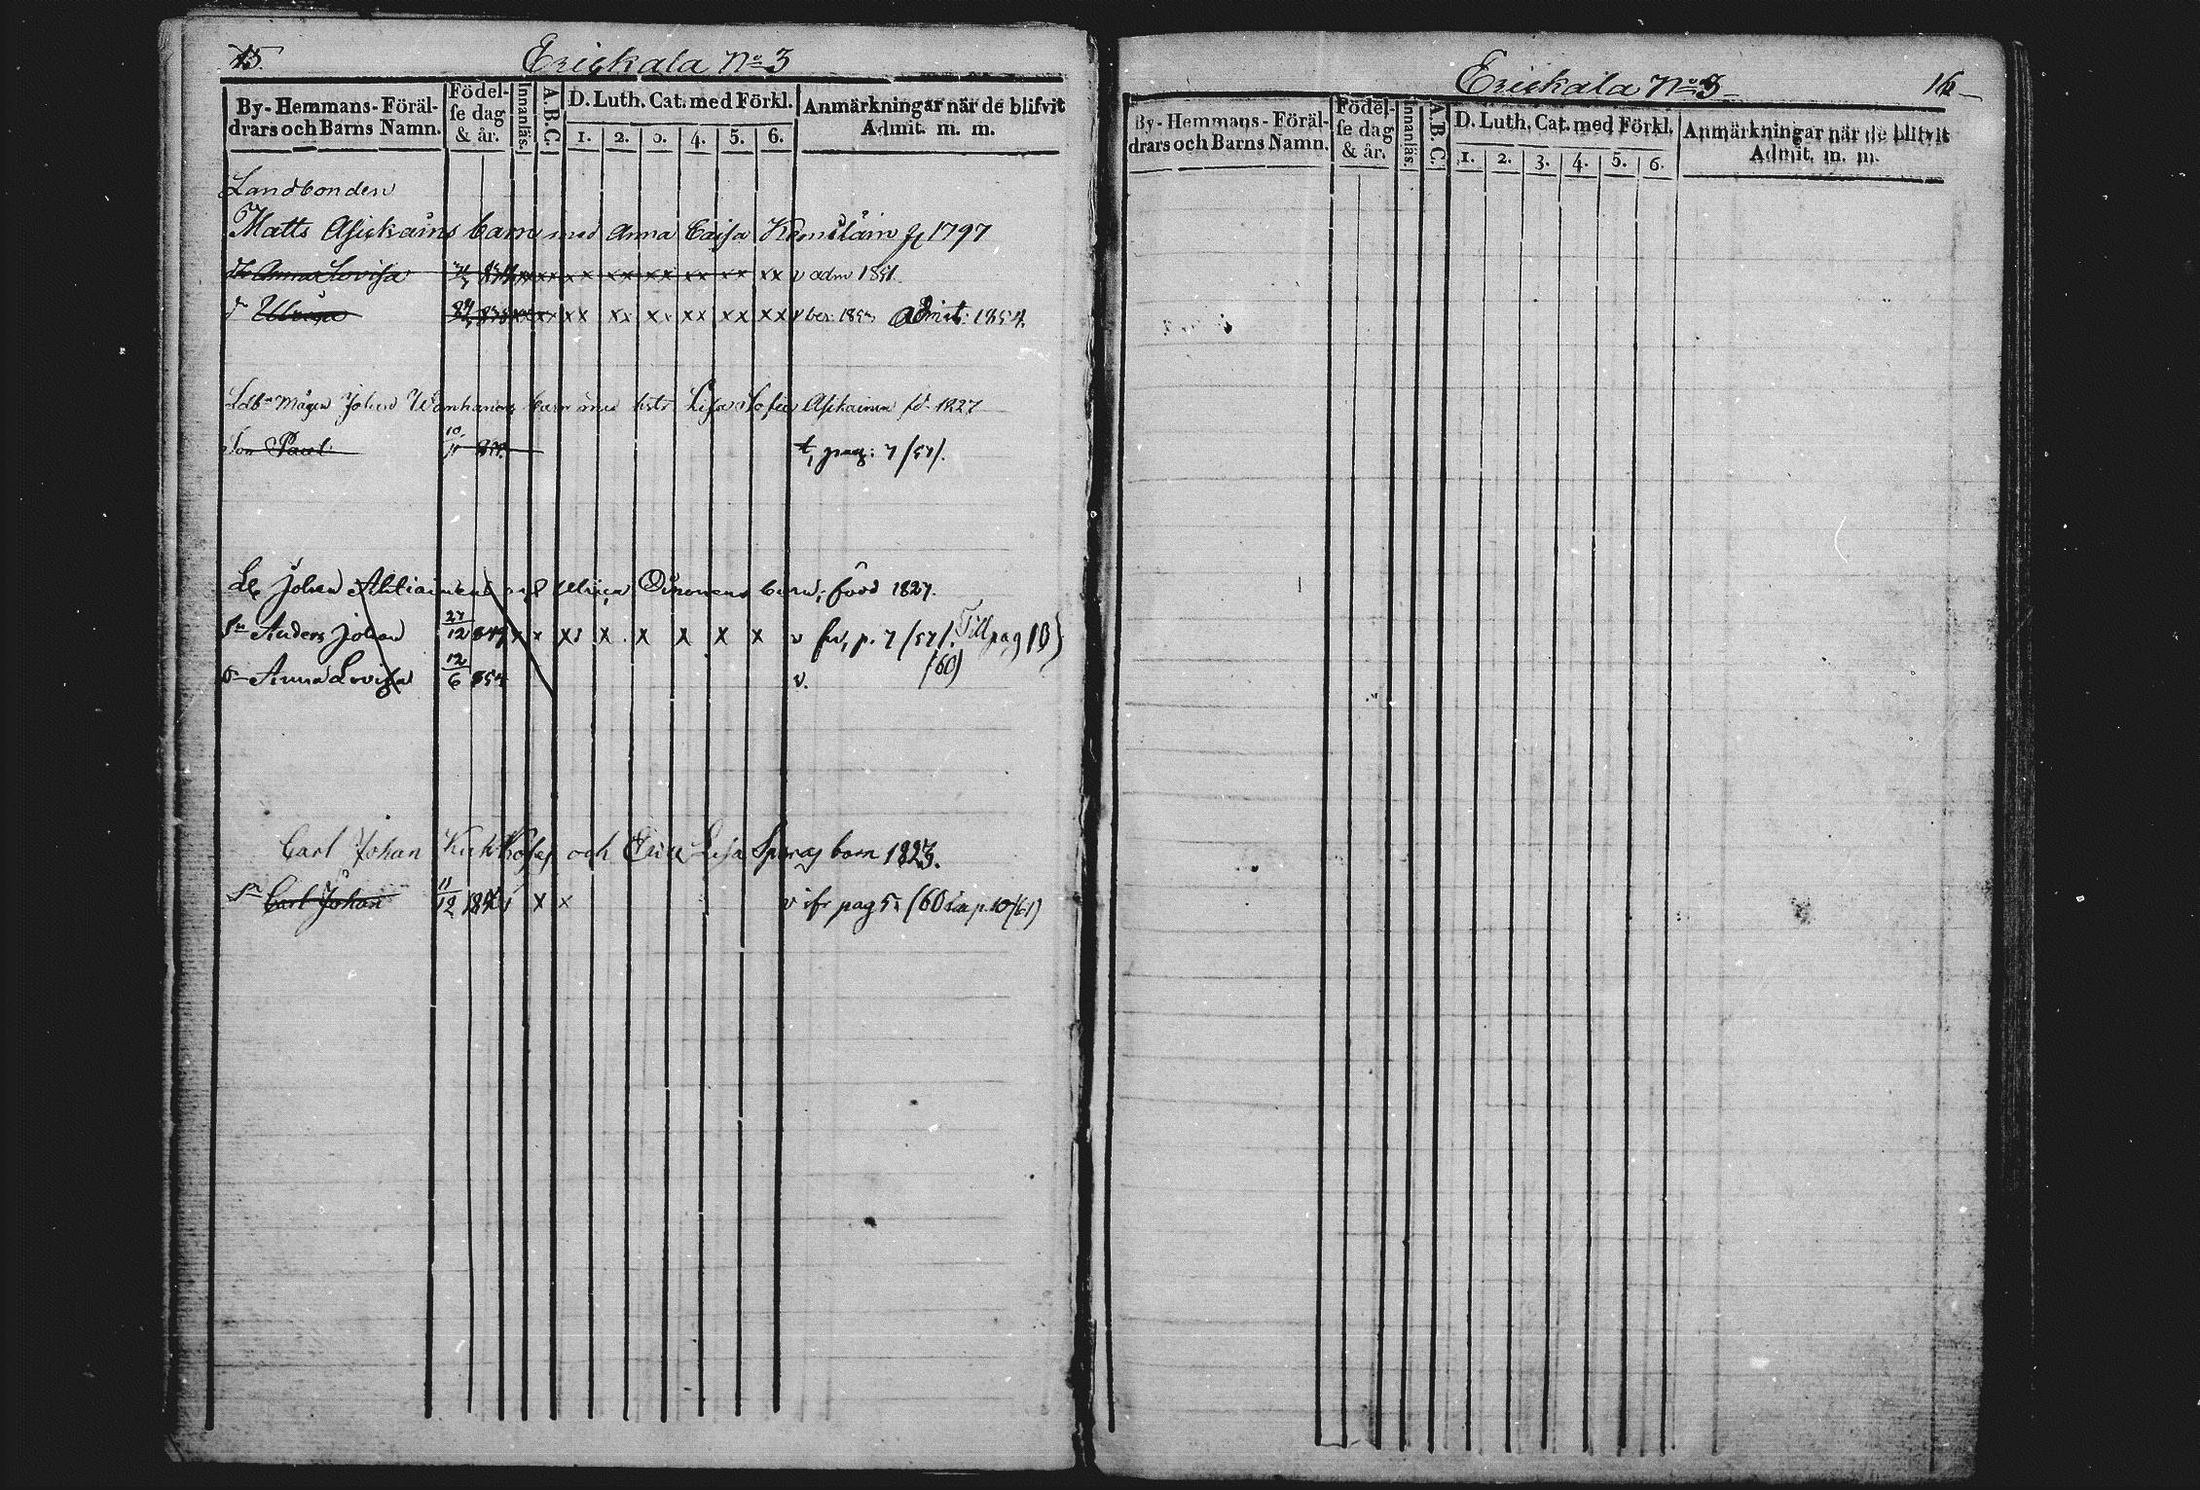 15.
Erickala No 3
By-Hemmans-Föräl-
drars och Barns Namn.
Födel-
se dag
& år.
Innanläs.
A.B.C.
D. Luth. Cat. med Förkl.
1. 2. 3. 4. 5. 6.
Anmärkningar när de blifvit
Admit. m. m.
Landbonden
Matts Asickains barn med Anna Caisa f 1797
Anna Lovisa xx xx xx xx xx xx xx xx v adm 1851
dr Ulrica xx xx xx xx xx xx xx xx v Admit: 1854.
Ldb Mågen Johan Wanhanens barn med hstr Lisa Sofia Asikainen fd 1827
Son Pavel 10/11 t, pag: 7/57/.
Johan Ahtiainens och Ulrica barn, född 1827.
Sn Anders Johan 27/12 849 x x xx x x x x x v fr, p. 7/57/. Till pag 10)
(60)
dr Anna Lovisa 12/6 854 v.
Carl Johan och Lisa barn 1823.
Sn Carl Johan 11/12 x x v ifr pag 5 (60 p 10/61)
Erickala No 3
16
By-Hemmans-Föräl-
drars och Barns Namn.
Födel-
se dag
& år.
Innanläs.
A.B.C.
D. Luth. Cat. med Förkl.
1. 2. 3. 4. 5. 6.
Anmärkningar när de blifvit
Admit. m. m.